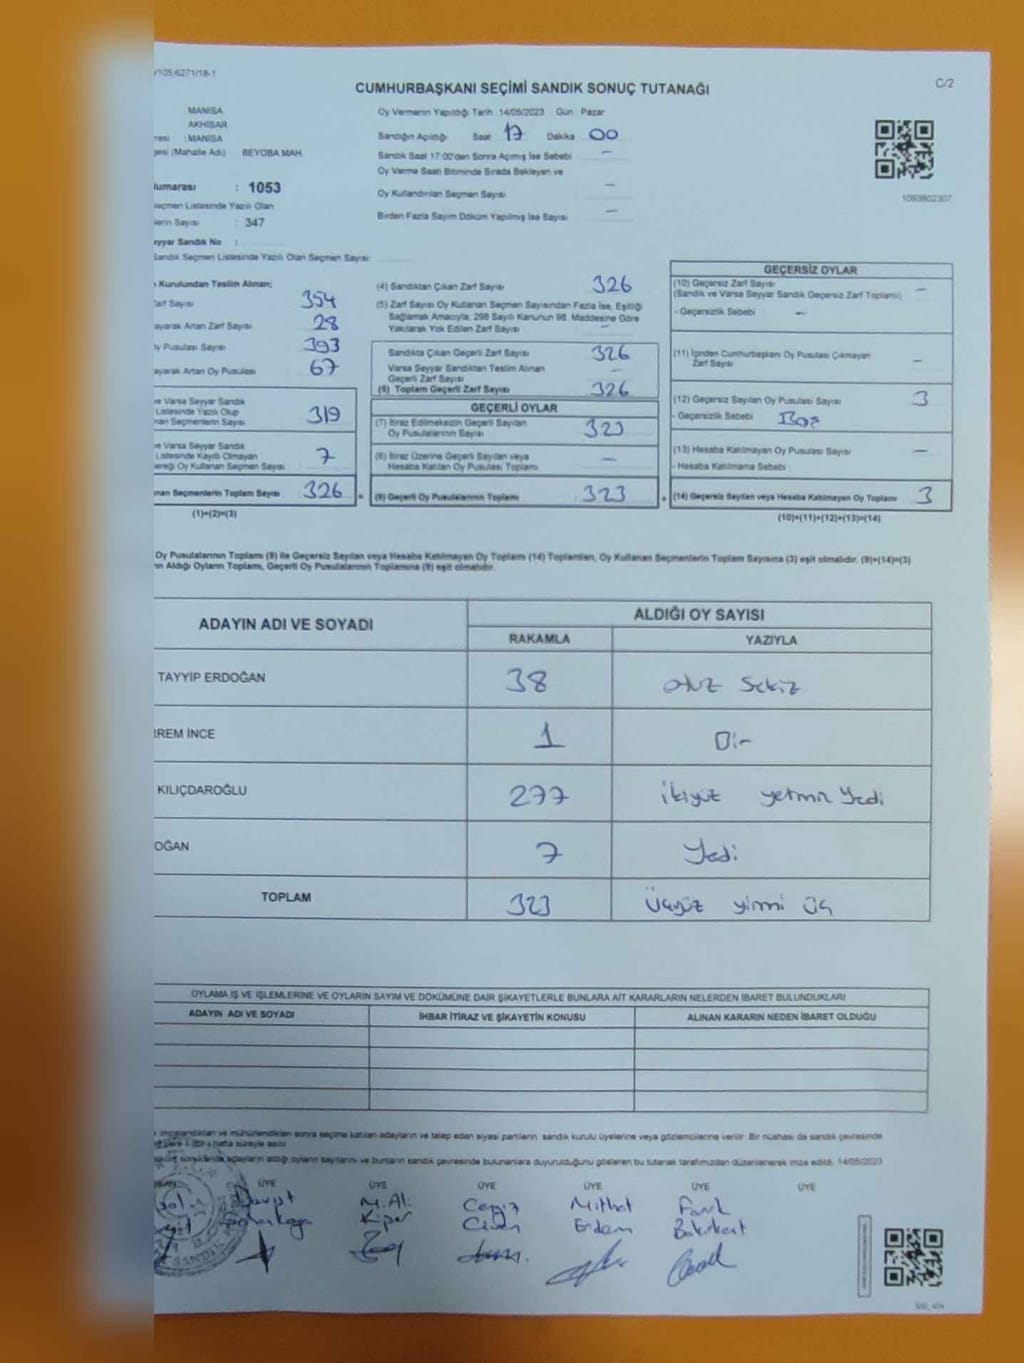 /105.6271/18-1
C/2
CUMHURBAŞKANI SEÇİMİ SANDIK SONUÇ TUTANAĞI
MANİSA
AKHİSAR
: MANİSA
(Mahalle Adı) BEYOBA MAH.
: 1053
Seçmen Listesinde Yazılı Olan
Sayısı : 347
Seyyar Sandık No :
Sandık Seçmen Listesinde Yazılı Olan Seçmen Sayısı:
Oy Vermenin Yapıldığı Tarih 14/05/2023 Gün : Pazar
Sandığın Açıldığı Saat 17 Dakika 00
Sandık Saat 17:00'den Sonra Açılmış İse Sebebi –
Oy Verme Saati Bitiminde Sırada Bekleyen ve
Oy Kullandırılan Seçmen Sayısı –
Birden Fazla Sayım Döküm Yapılmış İse Sayısı –
1093802307
Kurulundan Teslim Alınan;
Zarf Sayısı 354
Artan Zarf Sayısı 28
Oy Pusulası Sayısı 393
Artan Oy Pusulası 67
ve Varsa Seyyar Sandık
Listesinde Yazılı Olup
Seçmenlerin Sayısı 319
ve Varsa Seyyar Sandık
Listesinde Kayıtlı Olmayan
Oy Kullanan Seçmen Sayısı 7
Seçmenlerin Toplam Sayısı 326
(1)+(2)=(3)
(4) Sandıktan Çıkan Zarf Sayısı 326
(5) Zarf Sayısı Oy Kullanan Seçmen Sayısından Fazla İse, Eşitliği
Sağlamak Amacıyla, 298 Sayılı Kanunun 98. Maddesine Göre
Yakılarak Yok Edilen Zarf Sayısı –
Sandıkta Çıkan Geçerli Zarf Sayısı 326
Varsa Seyyar Sandıktan Teslim Alınan
Geçerli Zarf Sayısı –
(6) Toplam Geçerli Zarf Sayısı 326
GEÇERLİ OYLAR
(7) İtiraz Edilmeksizin Geçerli Sayılan
Oy Pusulalarının Sayısı 323
(8) İtiraz Üzerine Geçerli Sayılan veya
Hesaba Katılan Oy Pusulası Toplamı –
= (9) Geçerli Oy Pusulalarının Toplamı 323
GEÇERSİZ OYLAR
(10) Geçersiz Zarf Sayısı
(Sandık ve Varsa Seyyar Sandık Geçersiz Zarf Toplamı) –
- Geçersizlik Sebebi –
(11) İçinden Cumhurbaşkanı Oy Pusulası Çıkmayan
Zarf Sayısı –
(12) Geçersiz Sayılan Oy Pusulası Sayısı 3
- Geçersizlik Sebebi Boş
(13) Hesaba Katılmayan Oy Pusulası Sayısı –
- Hesaba Katılmama Sebebi
+ (14) Geçersiz Sayılan veya Hesaba Katılmayan Oy Toplamı 3
(10)+(11)+(12)+(13)=(14)
Oy Pusulalarının Toplamı (9) ile Geçersiz Sayılan veya Hesaba Katılmayan Oy Toplamı (14) Toplamları, Oy Kullanan Seçmenlerin Toplam Sayısına (3) eşit olmalıdır. (9)+(14)=(3)
Aldığı Oyların Toplamı, Geçerli Oy Pusulalarının Toplamına (9) eşit olmalıdır.
ADAYIN ADI VE SOYADI ALDIĞI OY SAYISI
RAKAMLA YAZIYLA
TAYYİP ERDOĞAN 38 otuz sekiz
RREM İNCE 1 Bir
KILIÇDAROĞLU 277 ikiyüz yetmiş yedi
OĞAN 7 Yedi
TOPLAM 323 Üçyüz yirmi üç
OYLAMA İŞ VE İŞLEMLERİNE VE OYLARIN SAYIM VE DÖKÜMÜNE DAİR ŞİKAYETLERLE BUNLARA AİT KARARLARIN NELERDEN İBARET BULUNDUKLARI
ADAYIN ADI VE SOYADI İHBAR İTİRAZ VE ŞİKAYETİN KONUSU ALINAN KARARIN NEDEN İBARET OLDUĞU
ve mühürlendikten sonra seçime katılan adayların ve talep eden siyasi partilerin sandık kurulu üyelerine veya gözlemcilerine verilir. Bir nüshası da sandık çevresinde
hafta süreyle asılır.
adayların aldığı oyların sayılarını ve bunların sandık çevresinde bulunanlara duyurulduğunu gösteren bu tutanak tarafımızdan düzenlenerek imza edildi. 14/05/2023
ÜYE ÜYE ÜYE ÜYE ÜYE ÜYE
M. Ali Cengiz Mithat Faruk
Kiper Erdem Bakırkent
SANDIK